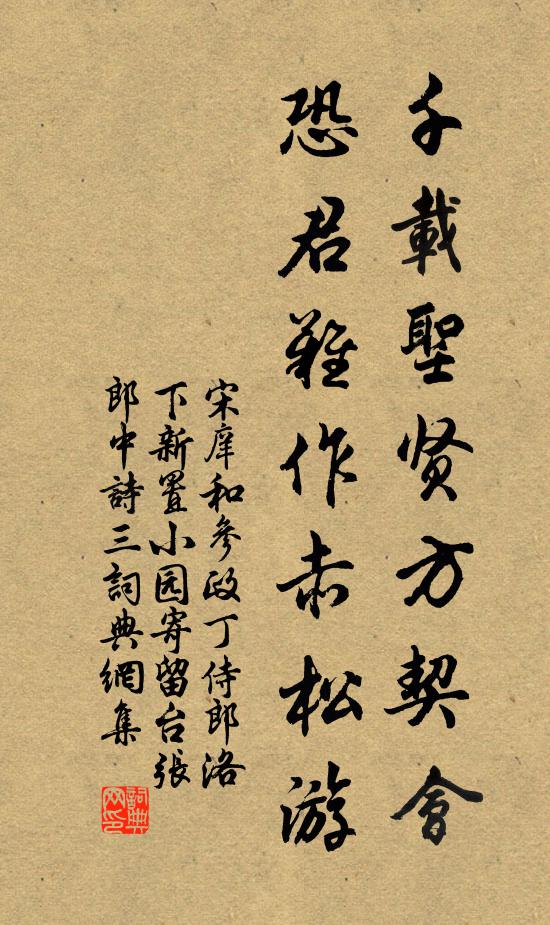 千載聖贤方契會
恐君難作赤松游
宋庠和參政丁侍郎洛
下新置小园寄留台張
郎中詩三詞典網集
詞典网印